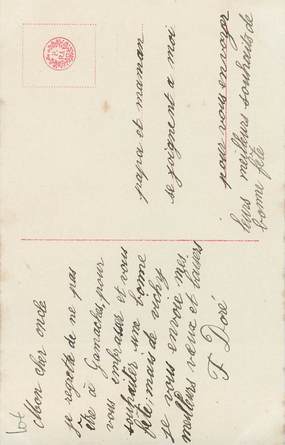 Mon cher oncle
je regrette de ne pas
être à Ganaches, pour
vous embrasser et vous
souhaiter une bonne
fête, mais de vichy
je vous envoie mes
meilleurs vœux et baisers
F Doré
papa et maman
se joignent a moi
pour vous envoyer
leurs meilleurs souhaits de
bonne fête